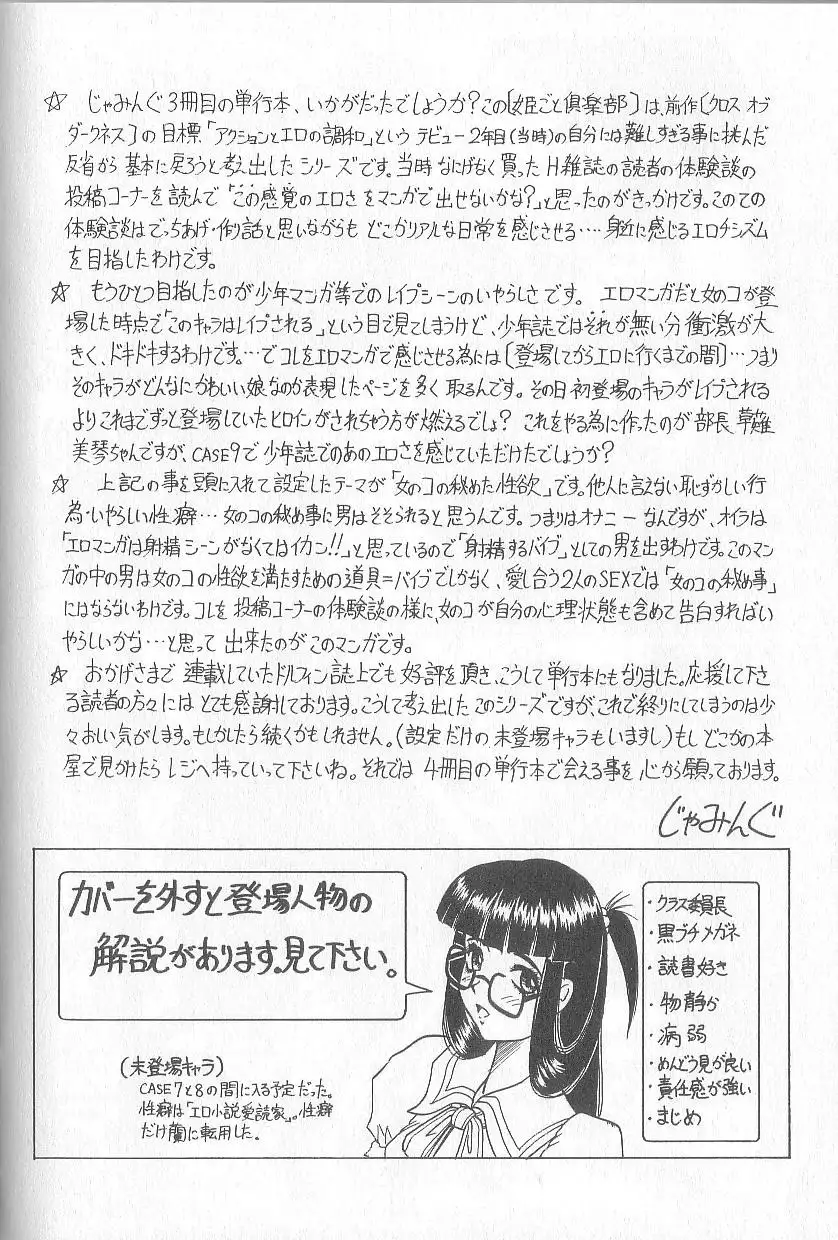 ☆ じゃみんぐ3冊目の単行本、いかがだったでしょうか?この〔姫ごと倶楽部〕は、前作〔クロス オブ
ダークネス〕の目標「アクションとエロの調和」という デビュー2年目(当時)の自分には難しすぎる事に挑んだ
反省から 基本に戻ろうと考え出した シリーズです。当時 なにげなく買った H雑誌の読者の体験談の
投稿コーナーを読んで「この感覚のエロさをマンガで出せないかな?」と思ったのがきっかけです。このての
体験談はでっちあげ・作り話と思いながらも どこかリアルな日常を感じさせる…身近に感じるエロチシズム
を目指したわけです。
☆ もうひとつ目指したのが少年マンガ等でのレイプシーンのいやらしさです。 エロマンガだと女のコが登
場した時点で「このキャラはレイプされる」という目で見てしまうけど、少年誌ではそれが無い分衝激が大
きく、ドキドキするわけです。…でコレをエロマンガで感じさせる為には〔登場してからエロに行くまでの間〕…つまり
そのキャラがどんなにかわいい娘なのか表現したページを多く 取るんです。その日初登場のキャラがレイプされる
よりこれまでずっと登場していたヒロインがされちゃう方が燃えるでしょ? これをやる為に作ったのが 部長 草薙
美琴ちゃんですが、CASE9で 少年誌でのあのエロさを感じていただけたでしょうか?
☆ 上記の事を頭に入れて設定したテーマが「女のコの秘めた性欲」です。他人に言えない恥ずかしい行
為・いやらしい性癖…女のコの秘め事に男はそそられると思うんです。つまりはオナニーなんですが、オイラは
「エロマンガは射精シーンがなくてはイカン!!」と思っているので「射精するバイブ」としての男を出すわけです。このマン
ガの中の男は女のコの性欲を満たすための道具=バイブでしかなく、愛し合う2人のSEXでは「女のコの秘め事」
にはならないわけです。コレを 投稿コーナーの体験談の様に、女のコが自分の心理状態も含めて告白すればい
やらしいかな…と思って 出来たのがこのマンガです。
☆ おかげさまで 連載していたドルフィン誌上でも好評を頂き、こうして単行本にもなりました。応援して下さ
る読者の方々には とても感謝しております。こうして考え出した このシリーズですが、これで終りにしてしまうのは少
々おしい気がします。もしかしたら続くかもしれません。(設定だけの 未登場キャラもいますし)もし どこかの本
屋で見かけたら レジへ持っていって下さいね。それでは 4冊目の単行本で会える事を 心から願っております。
じゃみんぐ
カバーを外すと登場人物の
解説があります。見て下さい。
(未登場キャラ)
CASE7と8の間に入る予定だった。
性癖は「エロ小説愛読家」。性癖
だけ蘭に転用した。
・クラス委員長
・黒ブチメガネ
・読書好き
・物静か
・病弱
・めんどう見が良い
・責任感が強い
・まじめ